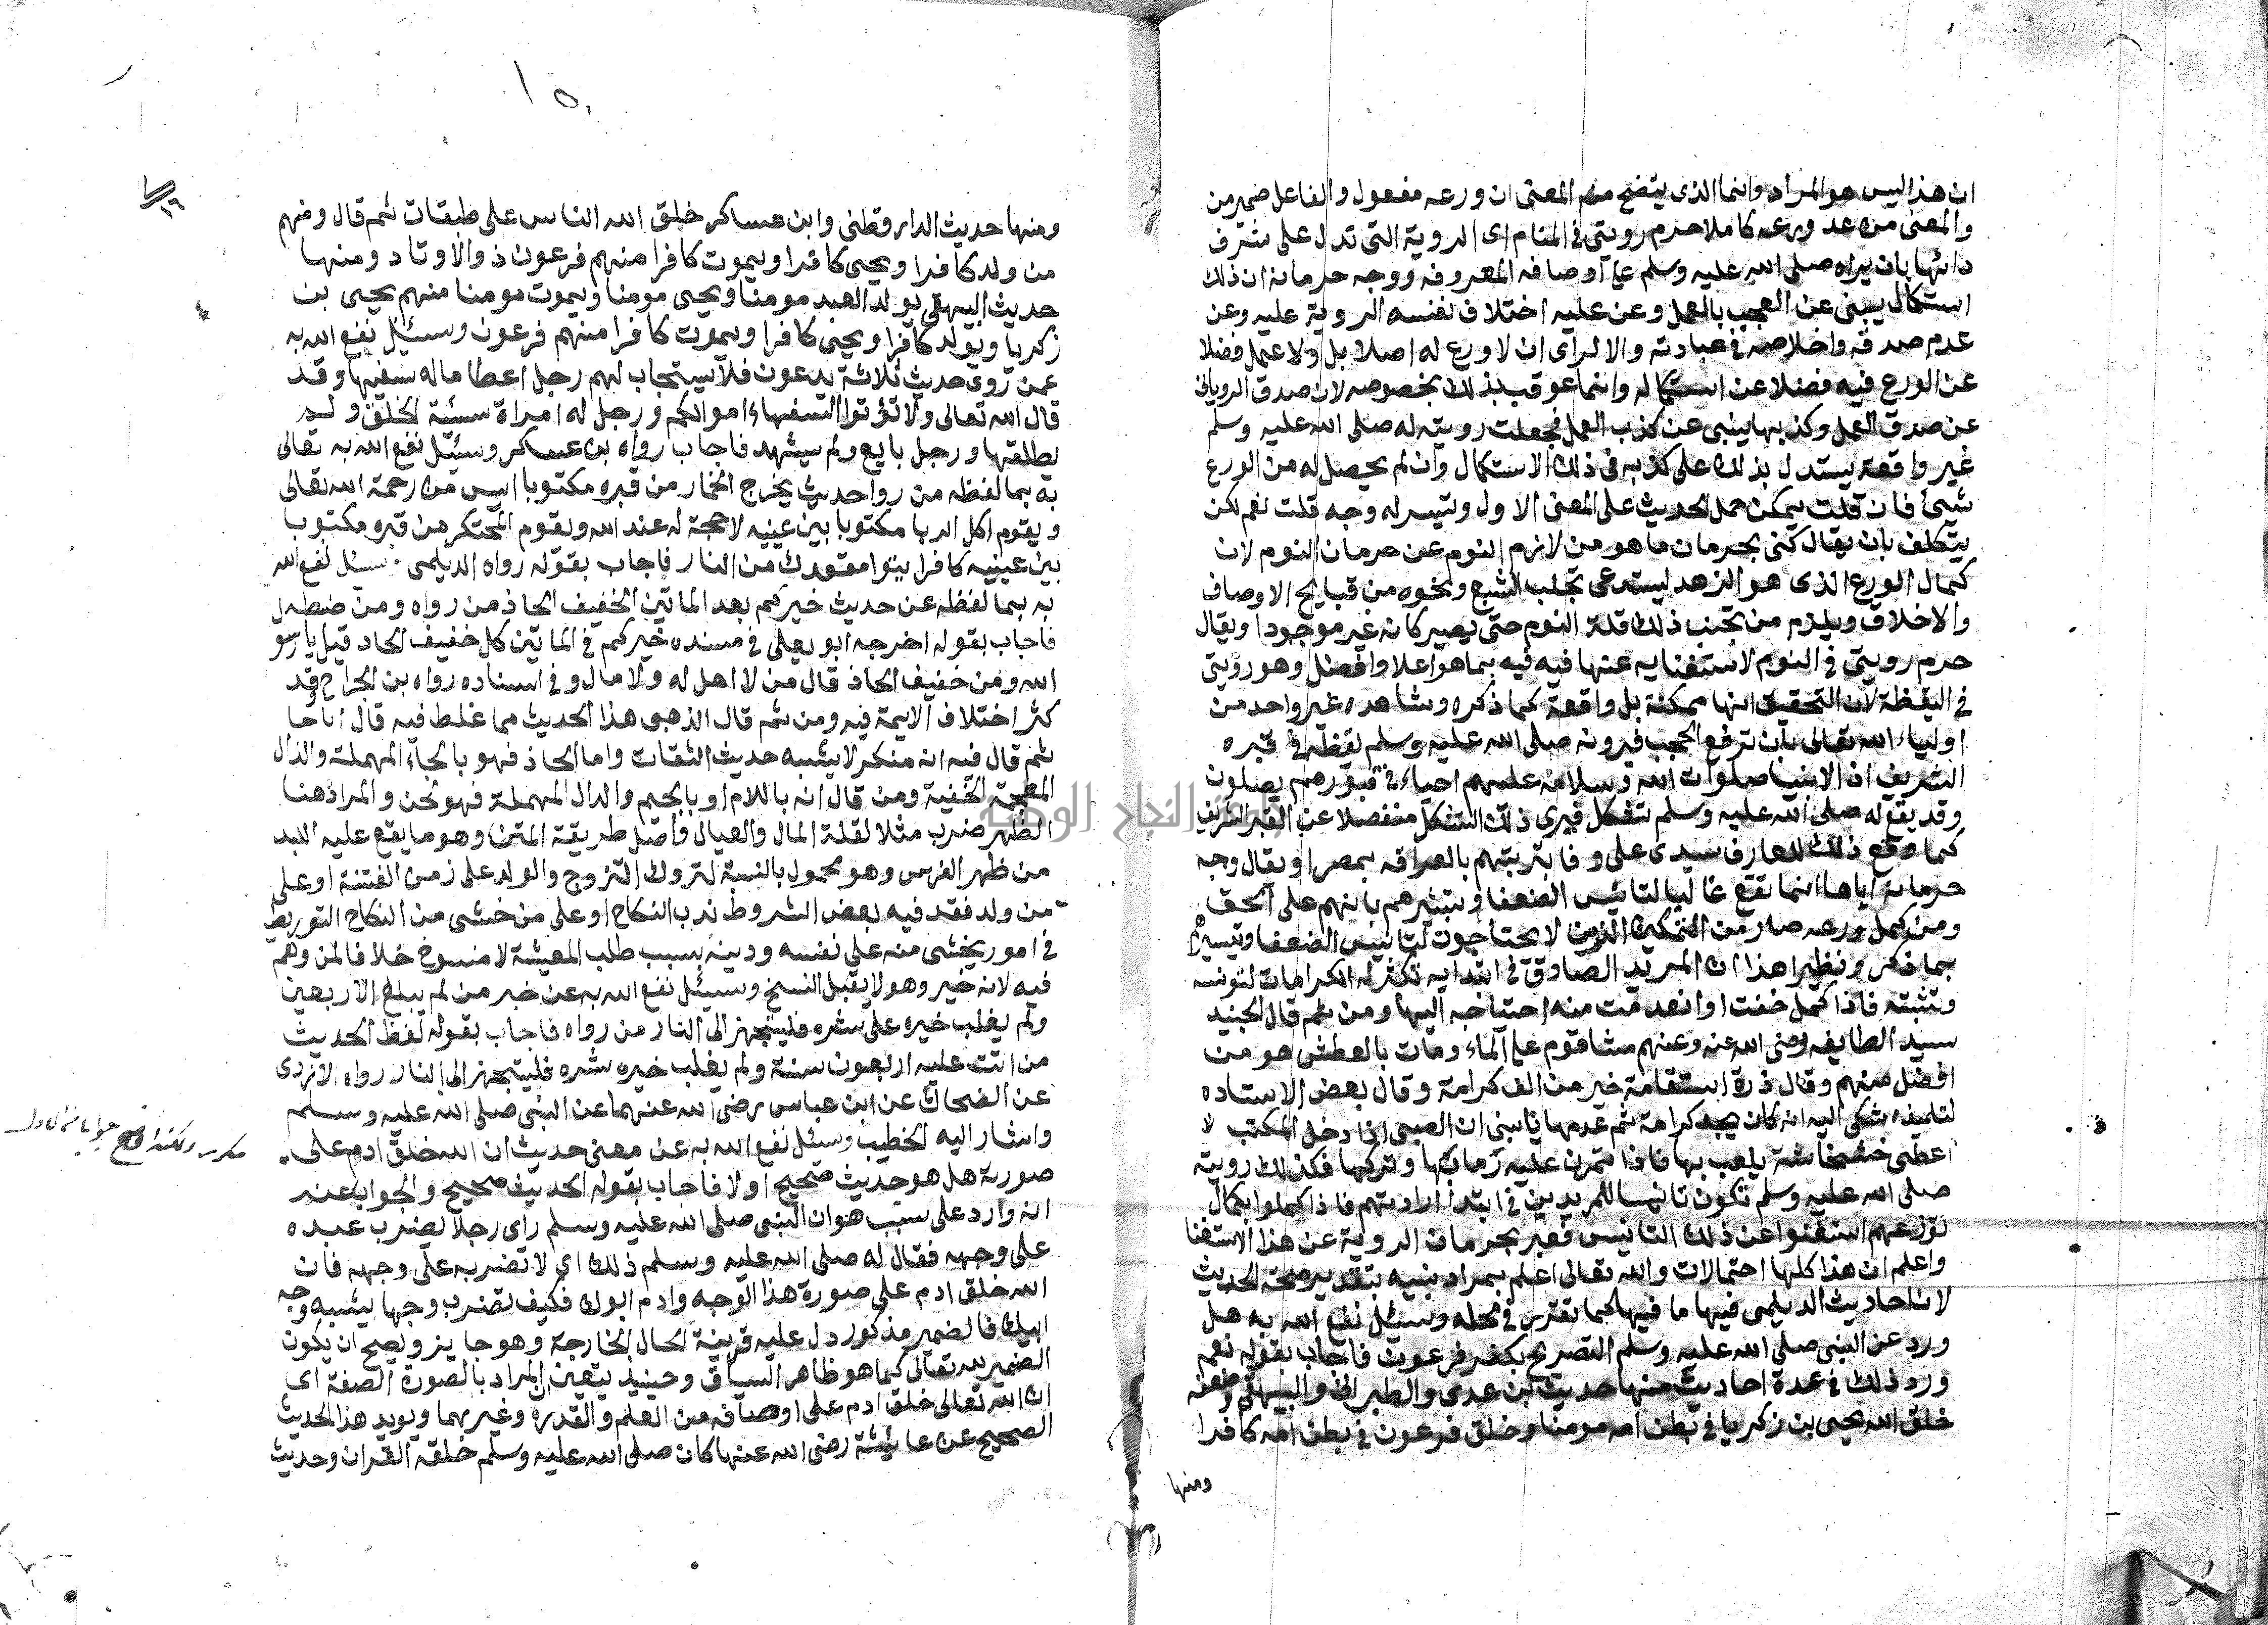 ان هذا ليس هو المراد وانما الذى يتضح منه المعنى ان ورعه مفعول والفاعل ضمير من
والمعنى من عد ورعه كاملا حرم رويتى فى المنام اى الروية التى تدل على شرف
رائها بان يراه صلى الله عليه وسلم على اوصافه المعروفة ووجه حرمانه ان ذلك
استكمال يبنى عن العجب بالعمل وعن عليه اختلاف نفسه الروية عليه وعن
عدم صدقه واخلاصه فى عبادته والا لراى ان لا ورع له اصلا بل ولا عمل فضلا
عن الورع فيه فضلا عن استكماله وانما عوقب بذلك بخصوصه لان صدق الرويا يبنى
عن صدق العمل وكذبها ينبى عن كذب العمل فجعلت رويته له صلى الله عليه وسلم
غير واقعة يستدل بذلك على كذبه فى ذلك الاستكمال وان لم يحصل له من الورع
شيئ فان قلت يمكن حمل الحديث على المعنى الاول وتيسر له وجه قلت نعم لكن
يتكلف بان يقال كنى بحرمان ما هو من لازم النوم عن حرمان النوم لان
كمال الورع الذى هو الزهد يستدعى تجنب الشبع ونحوه من قبايح الاوصاف
والاخلاق ويلزم من تجنب ذلك قلة النوم حتى يصير كانه غير موجود او يقال
حرم رويتى فى النوم لاستغنايه عنها فيه فيه بما هو اعلا وافضل وهو رؤيتى
فى اليقظة لان التحقيق انها ممكنة بل واقعة كما ذكره وشاهده غير واحد من
اولياء الله تعالى بان ترفع الحجب فيرونه صلى الله عليه وسلم يقظة فى قبره
الشريف اذ الانبيا صلوات الله وسلامه عليهم احياء فى قبورهم يصلون
وقد يقع له صلى الله عليه وسلم تشكل فيرى ذلك الشكل منفصلا عن القبر الشريف
كما وقع ذلك للعارف سيدى على وفا بتربتهم بالقرافة بمصر او يقال وجه
حرمانه اياها انما تقع غالبا لتانيس الضعفا وتبشيرهم بانهم على الحق
ومن كمل ورعه صار من المتمكنين الذين لا يحتاجون لتانيس الضعفا وتبشيرهم
بما ذكر ونظير هذا ان المريد الصادق فى ابتدايه تكثر له الكرامات لتونسه
وتثبته فاذا كمل خفت او انعدمت منه احتياجه اليها ومن ثم قال الجنيد
سيد الطايفه رضى الله عنه وعنهم مشا قوم على الماء ومات بالعطش من هو
افضل منهم وقال ذرة استقامة خير من الف كرامة وقال بعض الاستاده
لتلميذه شكى اليه انه كان يجد كرامة ثم عدمها يا بنى ان الصبى اذا دخل المكتب لا
اعطى خشخاشة يلعب بها فاذا تمرن عليه رماها وتركها فكذلك رويته
صلى الله عليه وسلم تكون تانيسا للمريدين فى ابتدا ارادتهم فاذا كملوا بكمال
تورعهم استغنوا عن ذلك التانيس فعبر بحرمان الروية عن هذا الاستغنا
واعلم ان هذا كلها احتمالات والله تعالى اعلم بمراد نبيه بتقدير صحة الحديث
لان احاديث الديلمى فيها ما فيها كما تقرر فى محله وسئل نفع الله به هل
ورد عن النبى صلى الله عليه وسلم التصريح بكفر فرعون فاجاب بقوله نعم
ورد ذلك فى عدة احاديث منها حديث ابن عدى والطبرانى والبيهقى وضعفه
خلق الله يحيى بن زكريا فى بطن امه مومنا وخلق فرعون فى بطن امه كافرا
ومنها
١٥٠
١٦
ومنها حديث الدارقطنى وابن عساكر خلق الله الناس على طبقات ثم قال ومنهم
من ولد كافرا ويحيى كافرا ويموت كافرا منهم فرعون ذو الاوتاد ومنها
حديث البيهقى يولد العبد مومنا ويحيى مومنا ويموت مومنا منهم يحيى بن
زكريا ويولد كافرا ويحيى كافرا ويموت كافرا منهم فرعون وسئل نفع الله به
عمن روى حديث ثلاثة يدعون فلا يستجاب لهم رجل اعطا ماله سفيها وقد
قال الله تعالى ولا تؤتوا السفهاء اموالكم ورجل له امراة سيئة الخلق ولم
يطلقها ورجل بايع ولم يشهد فاجاب رواه بن عساكر وسئل نفع الله به تعالى
به بما لفظه من روا حديث يخرج الخمار من قبره مكتوبا ايس من رحمة الله تعالى
ويقوم اكل الربا مكتوبا بين عينيه لا حجة له عند الله ويقوم المحتكر من قبره مكتوبا
بين عينيه كافرا يتبوا مقعدك من النار فاجاب بقوله رواه الديلمى . سئل نفع الله
به بما لفظه عن حديث خيركم بعد الماتين الخفيف الحاذ من رواه ومن ضبطه
فاجاب بقوله اخرجه ابو يعلى فى مسنده خيركم فى الماتين كل خفيف الحاد قيل يا رسول
الله ومن خفيف الحاذ قال من لا اهل له ولا مال وفى اسناده رواه بن الجراح وقد
كثر اختلاف الايمة فيه ومن ثم قال الذهبى هذا الحديث مما غلط فيه قال ابا حا
ثم قال فيه انه منكر لا يشبه حديث الثقات واما الحاذ فهو بالحاء المهملة والذال
المعجمة الخفية ومن قال انه باللام او بالجيم والدال المهملة فهو لحن والمراد هنا
الظهر ضرب مثلا لقلة المال والعيال واصل طريقة المتن وهو ما يقع عليه اللبد
من ظهر الفرس وهو محمول بالنسبة لتروك التزوج والولد على زمن الفتنة او على
من ولد فقد فيه بعض الشروط ندب النكاح او على من خشى من النكاح التوريط
فى امور يخشى منه على نفسه ودينه بسبب طلب المعيشة لا منسوخ خلافا لمن وهم
فيه لانه خير وهو لا يقبل النسخ وسئل نفع الله به عن خبر من لم يبلغ الاربعين
ولم يغلب خيره على شره فليتجهز الى النار من رواه فاجاب بقوله لفظ الحديث
من اتت عليه اربعون سنة ولم يغلب خيره شره فليتجهز الى النار رواه الازدى
عن الضحاك عن ابن عباس رضى الله عنهما عن النبى صلى الله عليه وسلم
واشار اليه الخطيب وسئل نفع الله به عن معنى حديث ان الله خلق ادم على
صورته هل هو حديث صحيح او لا فاجاب بقوله الحديث صحيح والجواب عنه
انه وارد على سبب هو ان النبى صلى الله عليه وسلم راى رجلا يضرب عبده
على وجهه فقال له صلى الله عليه وسلم ذلك اى لا تضربه على وجهه فان
الله خلق ادم على صورة هذا الوجه وادم ابوك فكيف تضرب وجها يشبه وجه
ابيك فالضمير مذكور دل عليه قرينة الحال الخارجة وهو جايز ويصح ان يكون
الضمير لله تعالى كما هو ظاهر السياق وحينيذ يتعين المراد بالصورة الصفة اى
ان الله تعالى خلق ادم على اوصافه من العلم والقدرة وغيرهما ويويد هذا الحديث
الصحيح عن عائيشة رضى الله عنها كان صلى الله عليه وسلم خلقه القران وحديث
مكرر ولكنه اوضح جوابا من الاول
جامعة النجاح الوطنية